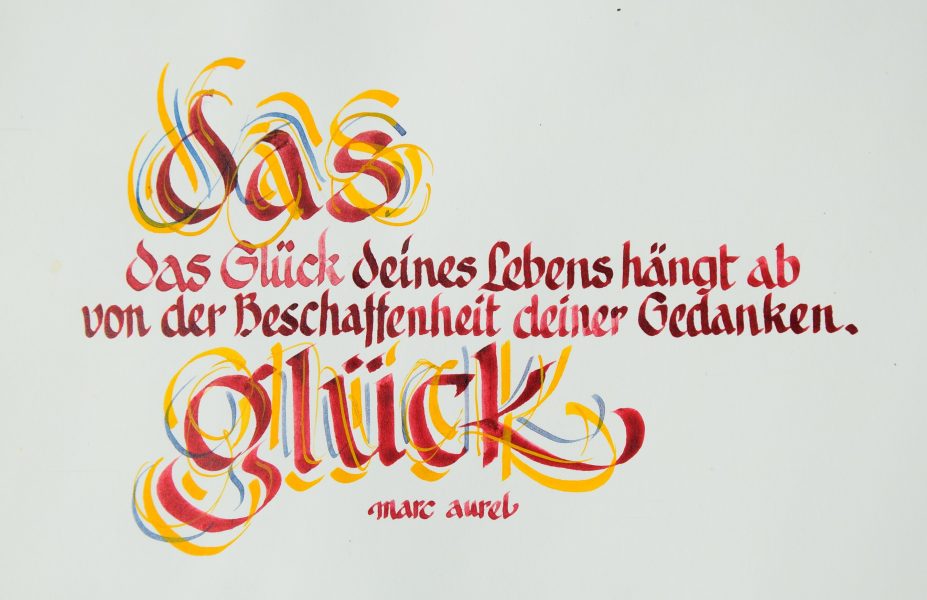 das
das Glück deines Lebens hängt ab
von der Beschaffenheit deiner Gedanken.
glück
marc aurel